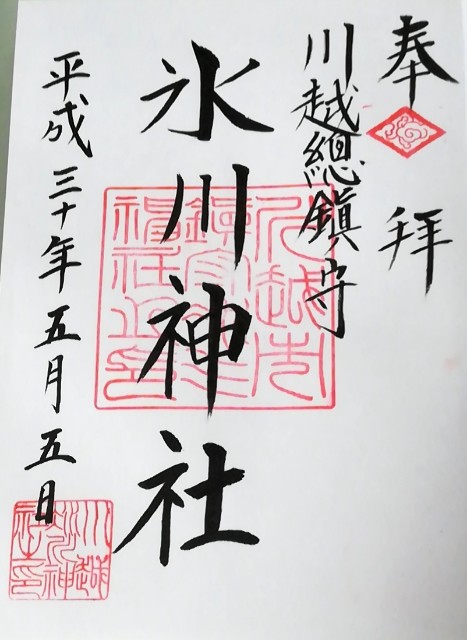 奉拝
川越總鎮守
氷川神社
平成三十年五月五日